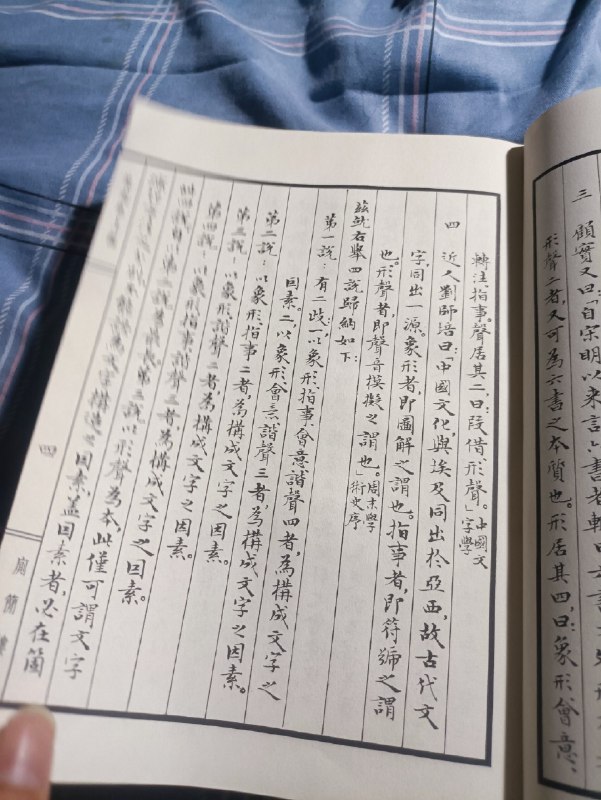 三 顧實又曰：「自宋明以來言六書者
形聲二者，又可為六書之本質也。形居其四，曰：象形會意，
轉注指事。聲居其二曰：叚借形聲。」中國文字學
四 近人劉師培曰：「中國文化，與埃及同出於亞西，故古代文
字，同出一源。象形者，即圖解之謂也。指事者，即符號之謂
也。形聲者，即聲音摸擬之謂也。」周末學術史序
茲就右舉四說歸納如下：
第一說：有二歧，一、以象形指事會意諧聲四者，為構成文字之
因素。二、以象形會意諧聲三者，為構成文字之因素。
第二說：以象形指事二者，為構成文字之因素。
第三說：以象形諧聲二者，為構成文字之因素。
第四說：以象形指事諧聲三者，為構成文字之因素。
第三說以形聲為本，此僅可謂文字
構造之因素，蓋因素者，必在箇
四